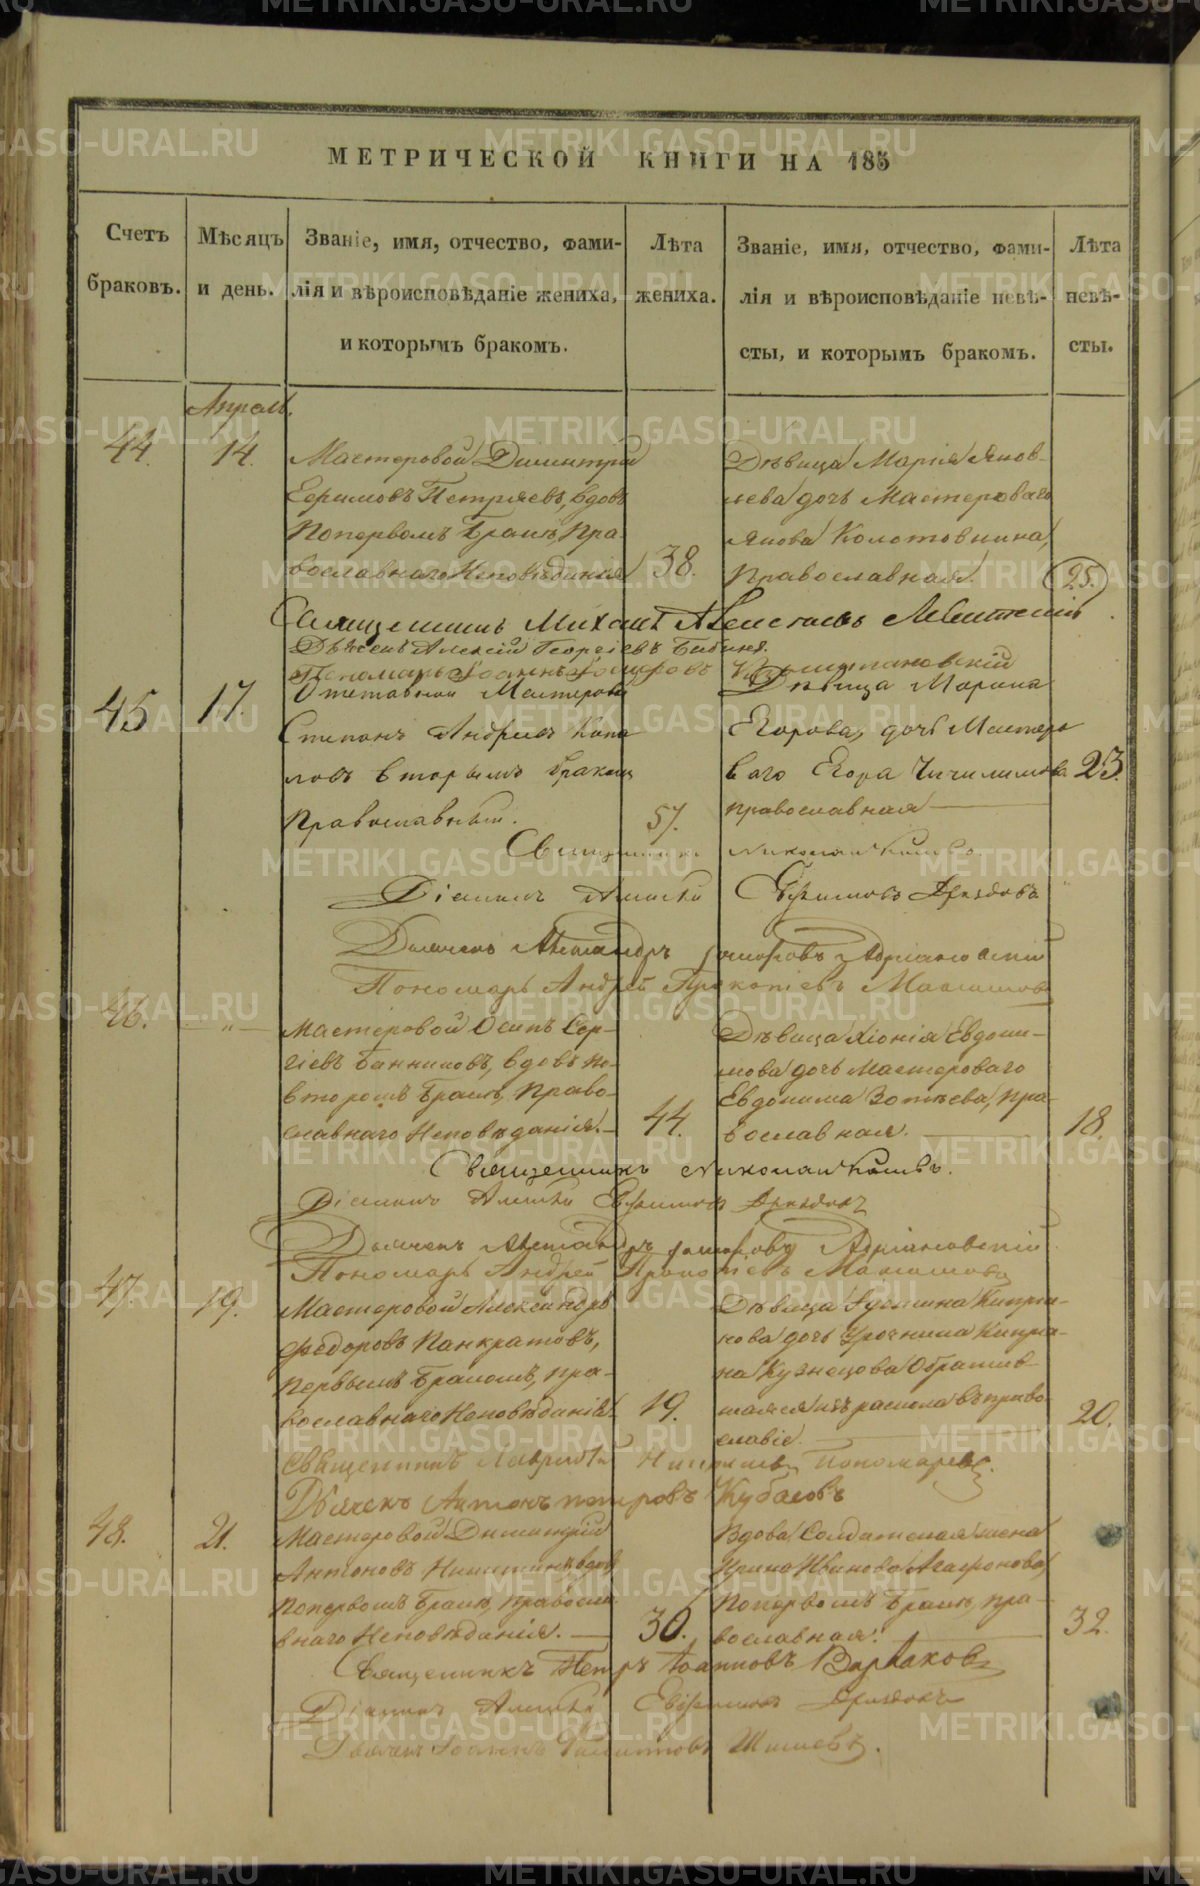 МЕТРИЧЕСКОЙ КНИГИ НА 185
Счетъ браковъ.
Мѣсяцъ и день.
Званіе, имя, отчество, фами-
лія и вѣроисповѣданіе жениха,
и которымъ бракомъ.
Лѣта
жениха.
Званіе, имя, отчество, фами-
лія и вѣроисповѣданіе невѣ-
сты, и которымъ бракомъ.
Лѣта
невѣ-
сты.
44. 14.
Мастеровой Димитрій
Ефимовъ Петряевъ, вдовъ
По первомъ бракѣ, Пра-
вославнаго Исповѣданія 38.
Дѣвица Марія Яков-
лева дочь Мастероваго
Якова Колотовкина,
Православная. 25.
Священникъ Михаилъ
Дьячекъ Алексій Георгіевъ
Пономарь Іоаннъ
45 17.
Отставной Мастерово
Степанъ Андреевъ Копы
ловъ вторымъ бракомъ
Православный. 57.
Дѣвица Марина
Егорова, дочь Мастеро
ваго Егора 23.
православная
Священникъ Николай
Діаконъ Алексѣй Евфимовъ Дроздовъ
Дьячекъ Александръ Адріановскій
Пономарь Андрей Прокопіевъ
46. - " -
Мастеровой Осипъ Сер-
гіевъ Банниковъ, вдовъ по
второмъ бракѣ, Право-
славнаго Исповѣданія. 44.
Дѣвица Хіонія Евдоки-
мова дочь Мастероваго
Евдокима Зотѣева, пра-
вославная. 18.
Священникъ Николай
Діаконъ Алексѣй Евфимовъ Дроздовъ
Дьячекъ Александръ Адріановскій
Пономарь Андрей Прокопіевъ
47. 19.
Мастеровой Александръ
Федоровъ Панкратовъ,
Первымъ бракомъ, пра-
вославнаго Исповѣданія 19.
Дѣвица Кипріа-
нова дочь Урочника Кипріа-
на Кузнецова Обратив-
шаяся изъ раскола въ право-
славіе. 20.
Священникъ Лаврентій Пономаревъ.
Дьячекъ Антонъ Петровъ Кубасовъ
48. 21.
Мастеровой Димитрій
Антоновъ Никитинъ, вдовъ
По первомъ бракѣ, правосла
внаго Исповѣданія. 30.
Вдова, Солдатская жена
Ирина Иванова Агафонова,
По первомъ бракѣ, пра-
вославная. 32.
Священникъ Петръ Іоанновъ Варлаковъ
Діаконъ Алексѣй Евфимовъ Дроздовъ
Дьячекъ Іоаннъ Филипповъ Шишевъ.
METRIKI.GASO-URAL.RU